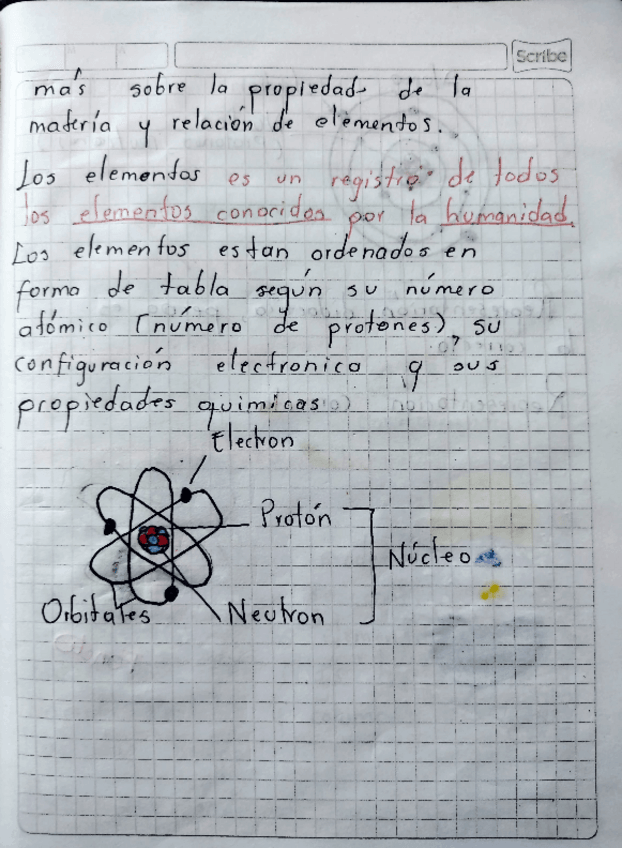 Scribe
más sobre la propiedad de la
matería y relación de elementos.
Los elementos es un registro de todos
los elementos conocidos por la humanidad.
Los elementos estan ordenados en
forma de tabla según su número
atómico (número de protones), su
configuración electronica y sus
propiedades quimicas
Electron
Protón
Núcleo
Orbitales
Neutron